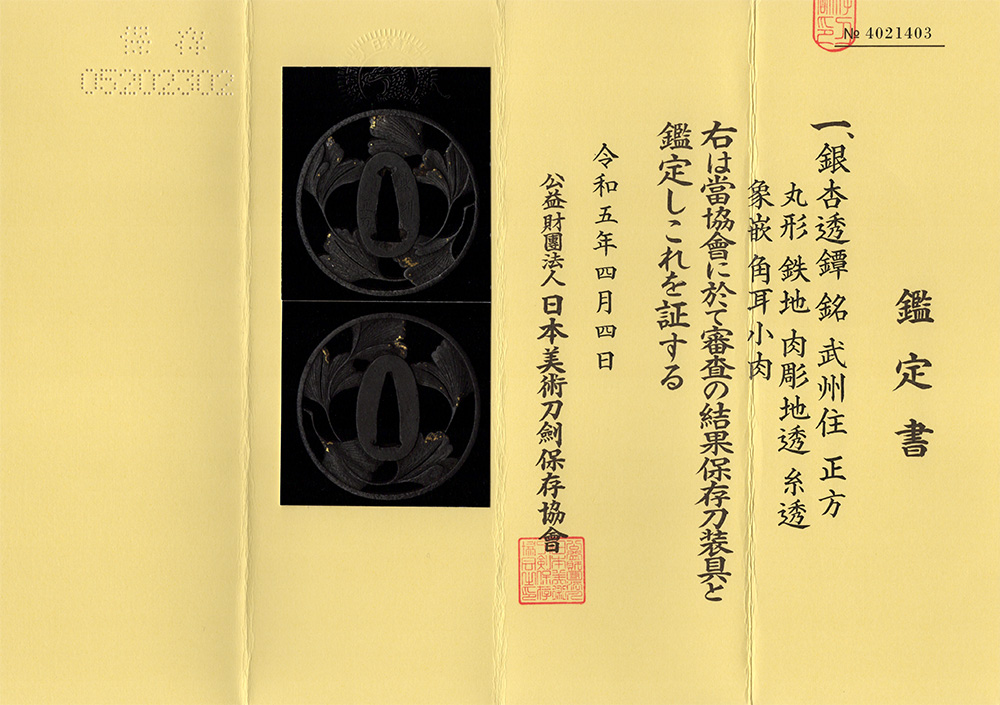 № 4021403
鑑定書
一、銀杏透鐔 銘 武州住 正方
丸形 鉄地 肉彫地透 糸透
象嵌 角耳小肉
右は當協會に於て審査の結果保存刀装具と
鑑定しこれを証する
令和五年四月四日
公益財團法人 日本美術刀劍保存協會
保存
05202302